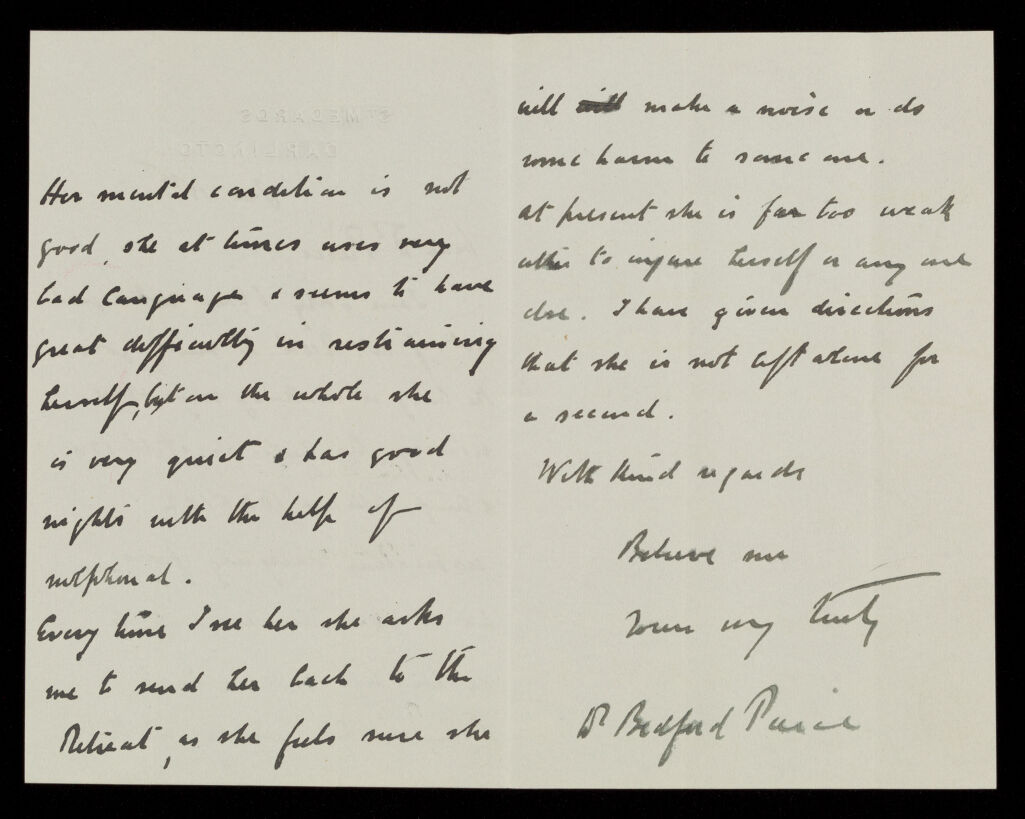 Her mental condition is not
good, she at times uses very
bad language & seems to have
great difficulty in restraining
herself, but on the whole she
is very quiet & has good
nights with the help of
sulphonal.
Every time I see her she asks
me to send her back to the
Retreat, as she feels sure she
will will make a noise or do
some harm to some one.
At present she is far too weak
either to injure herself or any one
else. I have given directions
that she is not left alone for
a second.
With kind regards
Believe me
Yours very truly
Dr Bedford Pierce
ST MEDARDS
DARLINGTO